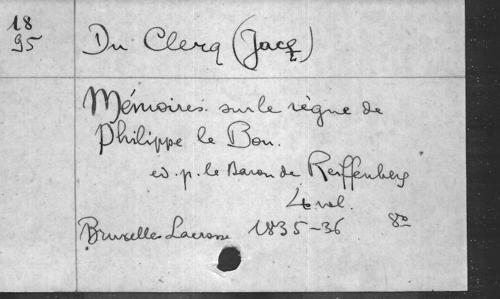 18
95
Du Clercq (Jacq)
Mémoires sur le règne de
Philippe le Bon.
ed. p. le Baron de Reiffenberg
4 vol.
Bruxelles Lacrosse 1835-36 8º